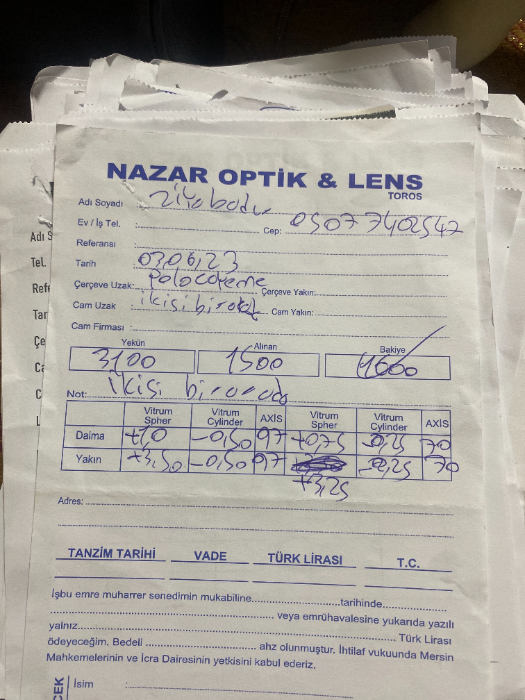 NAZAR OPTİK & LENS
TOROS
Adı Soyadı
Ev / İş Tel. Cep: 0507 7402547
Referansı
Tarih 03,06,23
Çerçeve Uzak: Çerçeve Yakın:
Cam Uzak ikisi birarada Cam Yakın:
Cam Firması
Yekün Alınan Bakiye
3100 1500 1600
Not: ikisi birarada
Vitrum Spher Vitrum Cylinder AXİS Vitrum Spher Vitrum Cylinder AXİS
Daima +1,0 -0,50 97 +0,75 -0,25 70
Yakın +3,50 -0,50 97 -0,25 70
+3,25
Adres:
TANZİM TARİHİ VADE TÜRK LİRASI T.C.
İşbu emre muharrer senedimin mukabiline tarihinde
veya emrühavalesine yukarıda yazılı
yalnız Türk Lirası
ödeyeceğim. Bedeli ahz olunmuştur. İhtilaf vukuunda Mersin
Mahkemelerinin ve İcra Dairesinin yetkisini kabul ederiz.
İsim
Adı S
Tel.
Refe
Tar
Çe